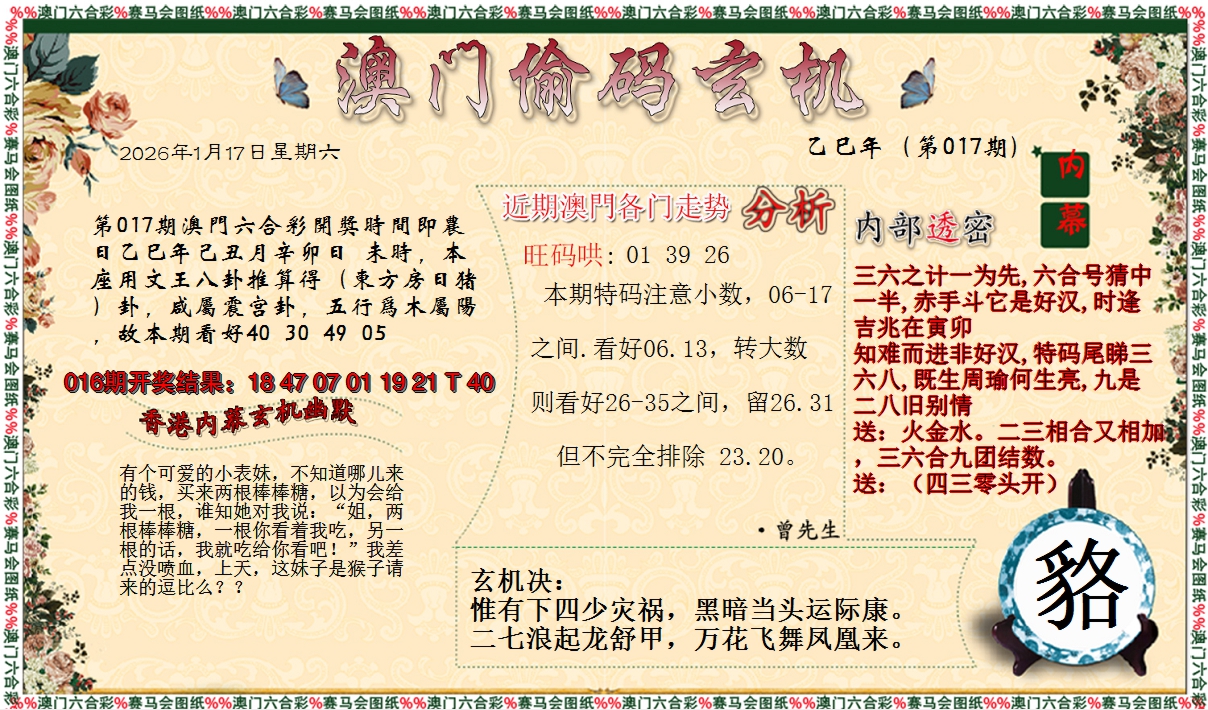 %%澳门六合彩%赛马会图纸%%澳门六合彩%赛马会图纸%%澳门六合彩%赛马会图纸%%澳门六合彩%赛马会图纸%%澳门六合彩%赛马会图纸%%澳门六合彩%赛马会图纸%%
澳门偷码玄机
2026年1月17日星期六
乙巳年（第017期）
内幕
第017期澳門六合彩開獎時間即農
日乙巳年己丑月辛卯日 未時，本
座用文王八卦推算得（東方房日猪
）卦，咸屬震宫卦，五行爲木屬陽
，故本期看好40 30 49 05
016期开奖结果：18 47 07 01 19 21 T 40
香港内幕玄机幽默
有个可爱的小表妹，不知道哪儿来
的钱，买来两根棒棒糖，以为会给
我一根，谁知她对我说：“姐，两
根棒棒糖，一根你看着我吃，另一
根的话，我就吃给你看吧！”我差
点没喷血，上天，这妹子是猴子请
来的逗比么？？
近期澳門各门走势 分析
旺码哄: 01 39 26
本期特码注意小数，06-17
之间.看好06.13，转大数
则看好26-35之间，留26.31
但不完全排除 23.20。
·曾先生
内部透密
三六之计一为先,六合号猜中
一半,赤手斗它是好汉,时逢
吉兆在寅卯
知难而进非好汉,特码尾睇三
六八,既生周瑜何生亮,九是
二八旧别情
送：火金水。二三相合又相加
，三六合九团结数。
送：（四三零头开）
玄机决：
惟有下四少灾祸，黑暗当头运际康。
二七浪起龙舒甲，万花飞舞凤凰来。
貉
%%澳门六合彩%赛马会图纸%%澳门六合彩%赛马会图纸%%澳门六合彩%赛马会图纸%%澳门六合彩%赛马会图纸%%澳门六合彩%赛马会图纸%%澳门六合彩%赛马会图纸%%